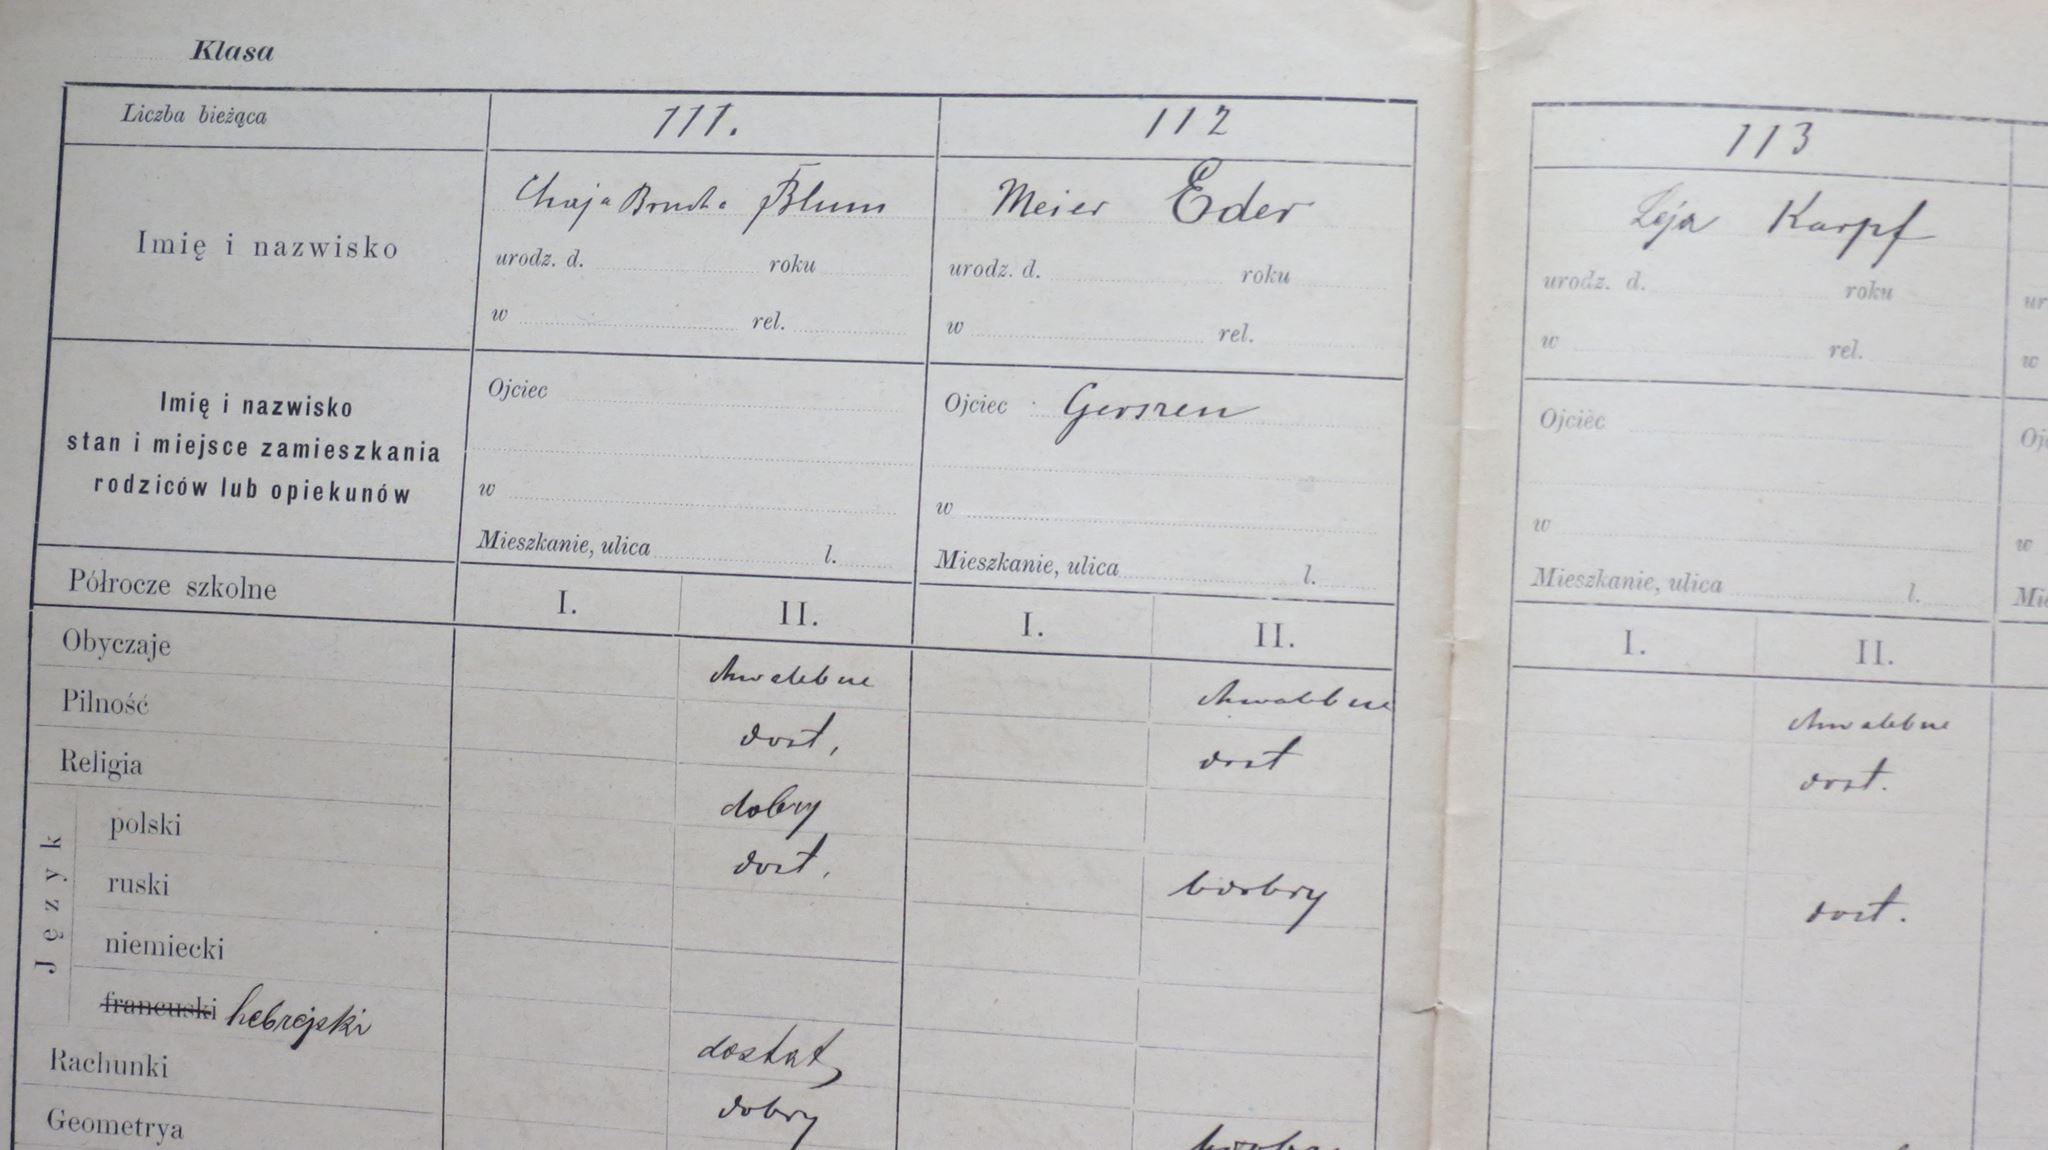 Klasa
Liczba bieżąca 111. 112 113
Imię i nazwisko Chaja Brucha Blum Meier Eder Leja Karpf
urodz. d. roku urodz. d. roku urodz. d. roku ur
w rel. w rel. w rel. w
Imię i nazwisko
stan i miejsce zamieszkania
rodziców lub opiekunów
Ojciec Ojciec Gerszen Ojciec Ojc
w w w w
Mieszkanie, ulica l. Mieszkanie, ulica l. Mieszkanie, ulica l. Mie
Półrocze szkolne I. II. I. II. I. II.
Obyczaje chwalebne chwalebne chwalebne
Pilność dost, dost dost.
Religia dobry
Język
polski dost. dost.
ruski
niemiecki
francuski hebrejski dostat
Rachunki dobry
Geometrya